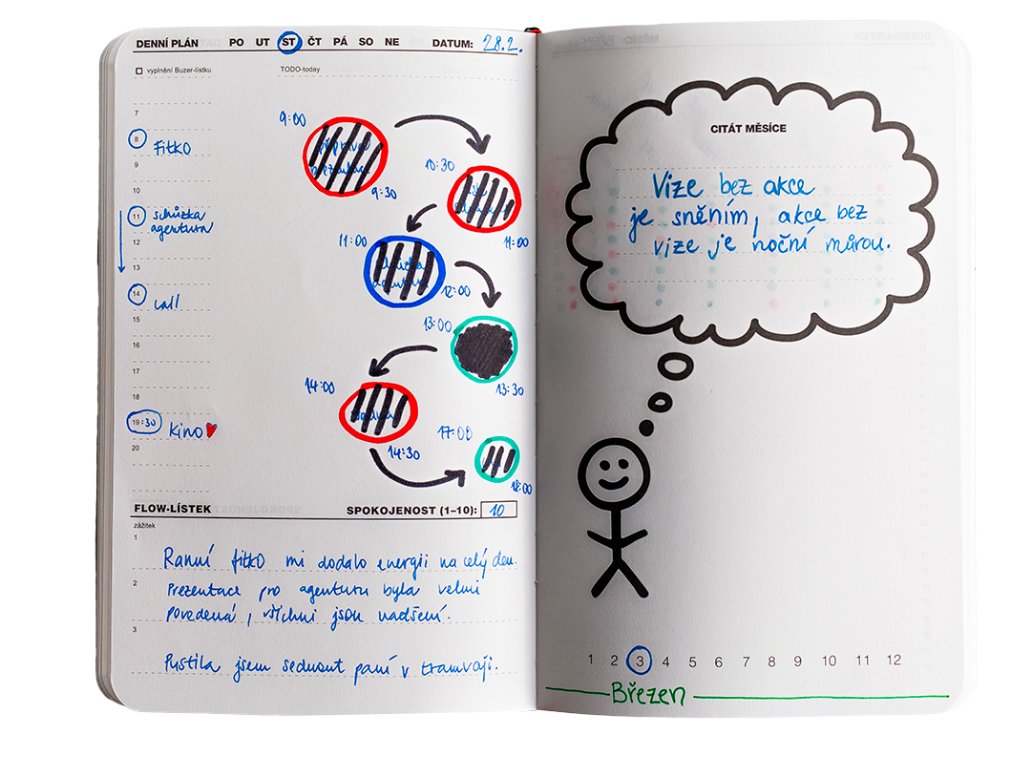 DENNÍ PLÁN PO ÚT ST ČT PÁ SO NE DATUM: 28.2.
vyplnění Buzer-lístku
TODO-today
7
8 Fitko
9
10
11 schůzka
agentura
12
13
14 call
15
16
17
18
19:30 Kino
20
9:00
9:30
10:30
11:00
11:00
12:00
13:00
13:30
14:00
14:30
17:00
18:00
FLOW-LÍSTEK SPOKOJENOST (1–10): 10
zážitek
1
Ranní fitko mi dodalo energii na celý den.
2
Prezentace pro agenturu byla velmi
povedená, všichni jsou nadšení.
3
Pustila jsem sednout paní v tramvaji.
CITÁT MĚSÍCE
Vize bez akce
je sněním, akce bez
vize je noční můrou.
1 2 3 4 5 6 7 8 9 10 11 12
Březen